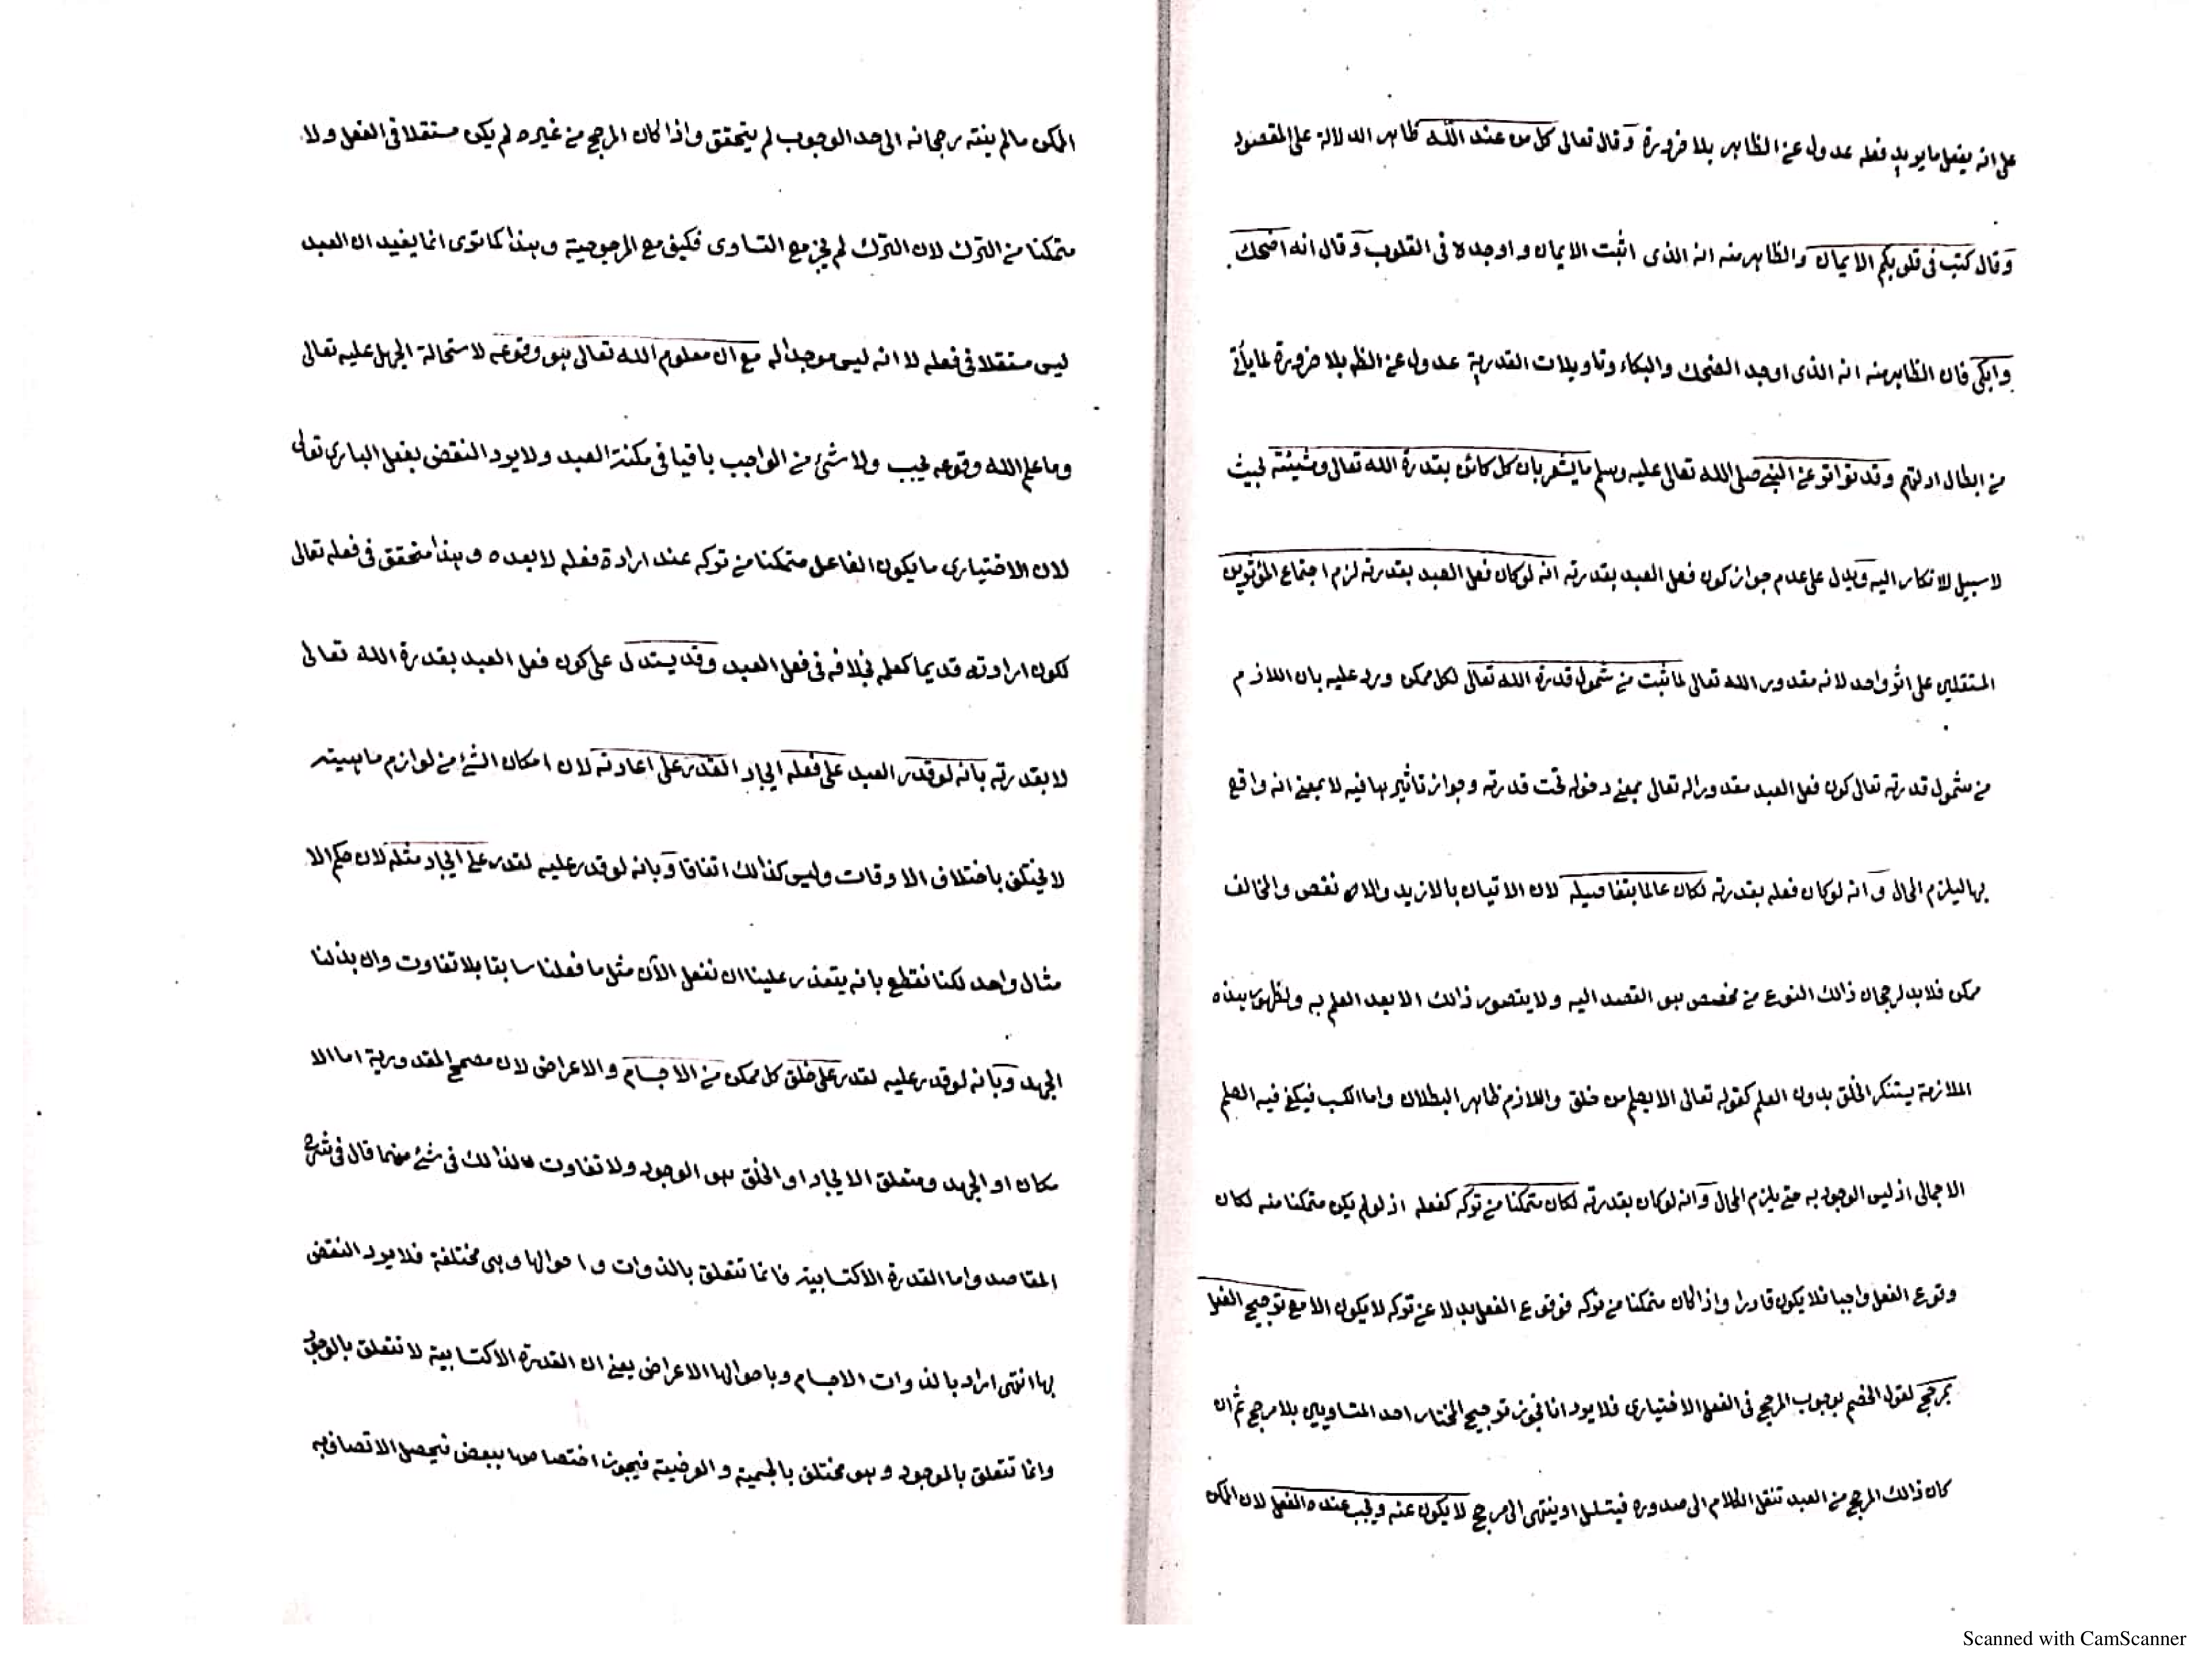 على انه يفعل ما يريد فعله عدول عن الظاهر بلا ضرورة وقال تعالى كل من عند الله ظاهر الدلالة على المقصود
وقال كتب فى قلوبكم الايمان والظاهر منه انه الذى اثبت الايمان واوجده فى القلوب وقال انه اضحك
وابكى فان الظاهر منه انه الذى اوجد الضحك والبكاء وتاويلات القدرية عدول عن الظه بلا ضرورة لما يأتى
من ابطال ادلتهم وقد تواتر عن النبى صلى الله تعالى عليه وسلم ما يشعر بان كل كائن بقدرة الله تعالى ومشيئته بحيث
لا سبيل للانكار اليه ويدل على عدم جواز كون فعل العبد بقدرته انه لو كان فعل العبد بقدرته لزم اجتماع المؤثرين
المستقلين على اثر واحد لانه مقدور الله تعالى لما ثبت من شمول قدرة الله تعالى لكل ممكن ورد عليه بان اللازم
من شمول قدرته تعالى كون فعل العبد مقدورا له تعالى بمعنى دخوله تحت قدرته وجواز تاثيرها فيه لا بمعنى انه واقع
بها ليلزم المحال وانه لو كان فعله بقدرته لكان عالما بتفاصيله لان الاتيان بالازيد والانقص والمخالف
ممكن فلا بد لرجحان ذالك النوع من مخصص هو القصد اليه ولا يتصور ذالك الا بعد العلم به ولظهور هذه
الملازمة يستنكر الخلق بدون العلم كقوله تعالى الا يعلم من خلق واللازم ظاهر البطلان واما الكسب فيكفى فيه العلم
الاجمالى اذ ليس الوجود به حتى يلزم المحال وانه لو كان بقدرته لكان متمكنا من تركه كفعله اذ لو لم يكن متمكنا منه لكان
وقوع الفعل واجبا فلا يكون قادرا واذا كان متمكنا من تركه فوقوع الفعل بدلا عن تركه لا يكون الا مع ترجيح الفعل
بمرجح لقول الخصم بوجوب المرجح فى الفعل الاختيارى فلا يرد انا نجوز ترجيح المختار احد المتساويين بلا مرجح ثم ان
كان ذالك المرجح من العبد تنقل الكلام الى صدوره فيتسلسل او ينتهى الى مرجح لا يكون عنه ويجب عنده الفعل لان الممكن
الممكن ما لم ينته رجحانه الى حد الوجوب لم يتحقق واذا كان المرجح من غيره لم يكن مستقلا فى الفعل ولا
متمكنا من الترك لان الترك لم يجز مع التساوى فكيف مع المرجوحية وهذا كما ترى انما يفيد ان العبد
ليس مستقلا فى فعله لا انه ليس موجدا له مع ان معلوم الله تعالى هو وقوعه لاستحالة الجهل عليه تعالى
وما علم الله وقوعه يجب ولا شئ من الواجب باقيا فى مكنة العبد ولا يرد النقض بفعل البارى تعالى
لان الاختيارى ما يكون الفاعل متمكنا من تركه عند ارادة فعله لا بعده وهذا متحقق فى فعله تعالى
لكون ارادته قديما كعلمه بخلافه فى فعل العبد وقد يستدل على كون فعل العبد بقدرة الله تعالى
لا بقدرته بانه لو قدر العبد على فعله ايجادا لقدر على اعادته لان امكان الشئ من لوازم ماهيته
لا يختلف باختلاف الاوقات وليس كذالك اتفاقا وبانه لو قدر عليه لقدر على ايجاد مثله لان حكم الا
مثال واحد لكنا نقطع بانه يتعذر علينا ان نفعل الآن مثل ما فعلنا سابقا بلا تفاوت وان بذلنا
الجهد وبانه لو قدر عليه لقدر على خلق كل ممكن من الاجسام والاعراض لان مصحح المقدورية اما الا
مكان او الجهد ومتعلق الايجاد او الخلق هو الوجود ولا تفاوت لذالك فى شئ منهما قال فى شرح
المقاصد واما القدرة الاكتسابية فانما تتعلق بالذوات واحوالها وهى مختلفة فلا يرد النقض
بها انتهى اراد بالذوات الاجسام وباحوالها الاعراض يعنى ان القدرة الاكتسابية لا تتعلق بالوجود
وانما تتعلق بالموجود وهو مختلف بالجسمية والعرضية فيجوز اختصاصها ببعض فيحصل الاتصاف به
Scanned with CamScanner